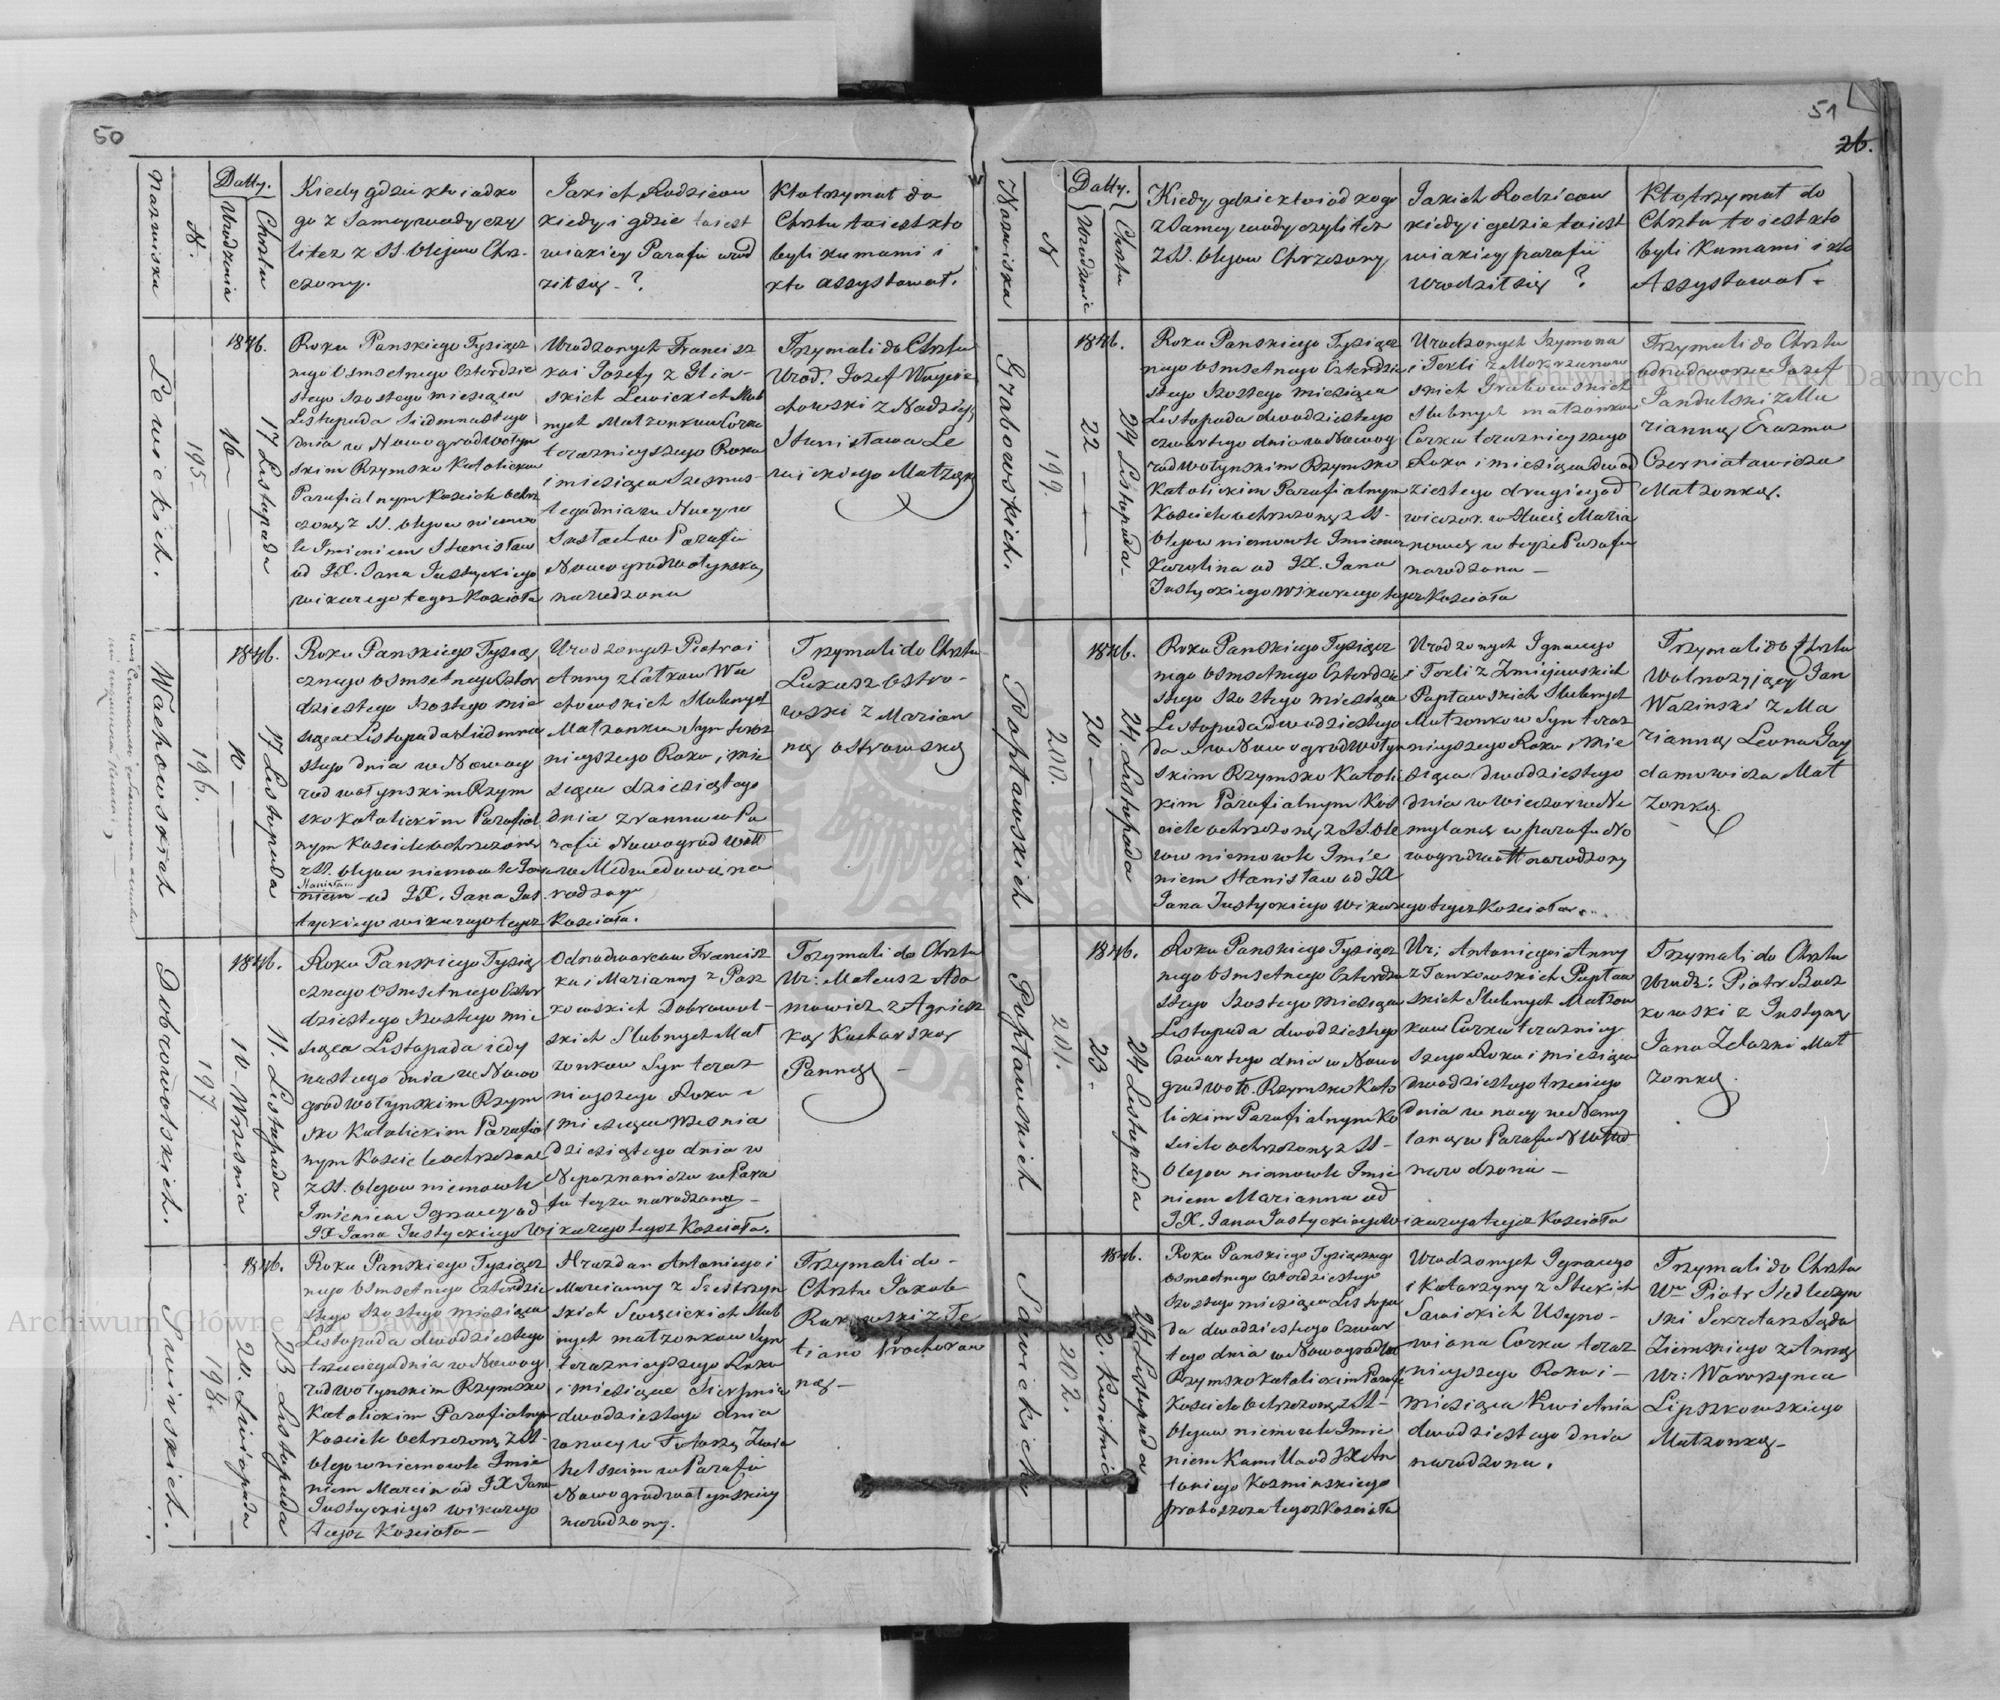 50
Nazwiska
N.
Datty.
Urodzenia
Chrztu
Kiedy gdzie kto i od ko
go z samey wody czy
li tez z SS. Olejow Chrz-
czony.
Jakich Rodzicow
kiedy i gdzie to iest
w iakiey Parafii urod
ził się - ?
Kto trzymał do
Chrztu to iest kto
byli kumami i
kto assystował.
Lewickich.
195.
1846.
16
17 Listopada
Roku Panskiego Tysiącz
nego Osmsetnego Czterdzie
stego Szostego miesiąca
Listopada Siedmnastego
dnia w Nowogrodwołyn
skim Rzymsko Katolickim
Parafialnym Kosciele Ochrz
czoną z SS. Olejow niemow
le Imieniem Stanisław
od JX. Jana Justyckiego
wikarego tegoz Kosciola
Urodzonych Francisz
ka i Jozefy z Glin-
skich Lewickich Slub
nych Małzonkow Corka
teraznieyszego Roku
i miesiąca Szesnas-
tego dnia w Nocy w
Parafii
Nowogrodwołynskiey
narodzona
Trzymali do Chrztu
Urod. Jozef Woycie
chowski z Nadzieją
Stanisława Le
wickiego Małzonką
Wachowskich
196.
1846.
10
17 Listopada
Roku Panskiego Tysiąc
cznego Osmsetnego Czter
dziestego Szostego mie
siąca Listopada Siedmna
stego dnia w Nowog
rodwołynskim Rzym
sko Katolickim Parafial
nym Kosciele Ochrzczony
z SS. Olejow niemowle Imie
Stanisław
niem od JX. Jana Jus
tyckiego wikarego tegoz Kosciola.
Urodzonych Piotra i
Anny z Łatkow Wa
chowskich Slubnych
Małzonkow Syn teraz
nieyszego Roku i mie
siąca dziesiątego
dnia z ranna w Pa
rafii Nowogrodwoł
w Medwedowie na
rodzony
Trzymali do Chrztu
Łukasz Ostro-
wski z Marian
ną Ostrowską
Dobrowolskich.
197.
1846.
10 - Wrzesnia
11. Listopada
Roku Panskiego Tysią
cznego Osmsetnego Czter
dziestego Szostego mie
siąca Listopada iedy
nastego dnia w Nowo
grodwołynskim Rzym
sko Katolickim Parafial
nym Kosciele Ochrzczone
z SS. Olejow niemowle
Imieniem Ignacy od
JX Jana Justyckiego Wikarego tegoz Kosciola.
Odnodworcow Francisz
ka i Marianny z Pasz
kowskich Dobrowol-
skich Slubnych Mał
zonkow Syn teraz
nieyszego Roku i
miesiąca Wrzesnia
dziesiątego dnia w
Nepoznaniczu w Para
fii teyze narodzony -
Trzymali do Chrztu
Ur: Mateusz Ada
mowicz z Agniesz
ką Kucharską
Panną -
Swinskich.
198.
1846.
20. Sierpnia
23 Listopada
Roku Panskiego Tysiącz
nego Osmsetnego Czterdzie
stego Szostego miesiąca
Listopada dwudziestego
trzeciego dnia w Nowog
rodwołynskim Rzymsko
Katolickim Parafialnym
Kosciele Ochrzczony z SS.
Olejow niemowle Imie
niem Marcin od JX Jana
Justyckiego wikarego
tegoz Kosciola -
Grazdan Antoniego i
Marianny z
Slub
nych małzonkow Syn
teraznieyszego Roku
i miesiąca Sierpnia
dwudziestego dnia
w nocy w
w Parafii
Nowogrodwołynskiey
narodzony.
Trzymali do -
Chrztu Jakob
z Te
tianą Prochorow
ną -
51
26.
Nazwiska
N
Datty.
Urodzenie
Chrztu
Kiedy gdzie kto i od kogo
z Samey wody czyli tez
z SS. Olejow Chrzczony
Jakich Rodzicow
kiedy i gdzie to iest
w iakiey parafii
Urodził się ?
Kto trzymał do
Chrztu to iest kto
byli Kumami i kto
Assystował -
Grabowskich.
199.
1846.
22
24 Listopada -
Roku Panskiego Tysiącz
nego Osmsetnego Czterdzie
stego Szostego miesiąca
Listopada dwudziestego
czwartego dnia w Nowog
rodwołynskim Rzymsko
Katolickim Parafialnym
Kosciele ochrzczoną z SS-
Olejow niemowle Imieniem
Karolina od JX. Jana
Justyckiego Wikarego tegoz Kosciola
Urodzonych Szymona
i Tekli z Mokrzanow
skich Grabowskich
Slubnych małzonkow
Corka teraznieyszego
Roku i miesiąca dwud
ziestego drugiego d
wieczor. w Słucie Maria
nowce w teyze Parafii
narodzona -
Trzymali do Chrztu
odnodworzec Jozef
Jandulski z Ma
rianną Erazma
Czerniatowicza
Małzonką.
Popławskich
200.
1846.
20
24 Listopada
Roku Panskiego Tysiącz
nego Osmsetnego Czterdzie
stego Szostego miesiąca
Listopada dwudziestego
dnia w Nowogrodwołyn
skim Rzymsko Katoli
kim Parafialnym Kos
ciele ochrzczony z SS. Ole
jow niemowle Imie
niem Stanisław od JX
Jana Justyckiego Wikarego tegoz Kosciola.
Urodzonych Ignacego
i Tekli z Zmijewskich
Popławskich Slubnych
Małzonkow Syn teraz
nieyszego Roku i mie
siąca dwudziestego
dnia w wieczor w Ne
mylance w parafii No
wogrodwoł narodzony
Trzymali do Chrztu
Wolnozyjący Jan
Wazinski z Ma
rianną Leona Gay
damowicza Mał
zonką
Popławskich
201.
1846.
23 -
24 Listopada
Roku Panskiego Tysiącz
nego Osmsetnego Czterdzie
stego Szostego miesiąca
Listopada dwudziestego
Czwartego dnia w Nowo
grodwoł. Rzymsko Kato
lickim Parafialnym Ko
sciele ochrzczoną z SS-
Olejow niemowle Imie
niem Marianna od
JX. Jana Justyckiego Wikarego tegoz Kosciola
Ur: Antoniego i Anny
z Tankowskich Popław
skich Slubnych Małzon
kow Corka terazniey
szego Roku i miesiąca
dwudziestego trzeciego
dnia w nocy w Nemy
lance w Parafii
narodzona -
Trzymali do Chrztu
Urodz: Piotr Bacz
kowski z Justyną
Jana Zelazki Mał
zonką.
Sawickich
202.
1846.
2. Kwietnia
24 Listopada
Roku Panskiego Tysiącznego
Osmsetnego Czterdziestego
Szostego miesiąca Listopa
da dwudziestego Czwar
tego dnia w Nowogrodwoł
Rzymsko Katolickim Parafi
Kosciele Ochrzczoną z SS-
Olejow niemowle Imie
niem Kamilla od JX An
toniego Kozminskiego
proboszcza tegoz Kosciola
Urodzonych Ignacego
i Katarzyny z Stekich
Sawickich Usyno-
wiona Corka teraz
nieyszego Roku i -
miesiąca Kwietnia
dwudziestego dnia
narodzona.
Trzymali do Chrztu
Piotr Siedleczyn
ski Sekretarz Sądu
Ziemskiego z Anną
Ur: Wawrzynca
Lipszkowskiego
Małzonką -
Archiwum Główne Akt Dawnych
Archiwum Główne Akt Dawnych